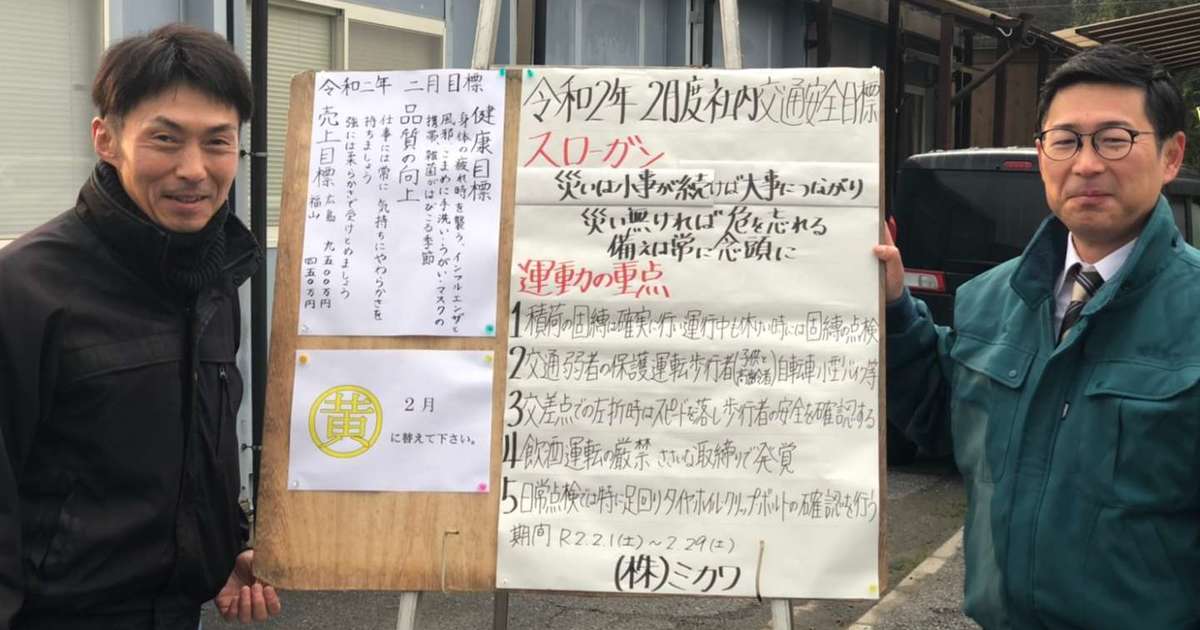 令和二年 二月目標
健康目標
身体の疲れ時を襲う、インフルエンザと
風邪、こまめに手洗い・うがい・マスクの
携帯、雑菌がはびこる季節
品質の向上
仕事には常に 気持ちにやわらかさを
持ちましょう
強には柔らかさで受けとめましょう
売上目標 広島 九五〇〇万円
福山 四五〇万円
黄
2月
に替えて下さい。
令和2年 2月度社内交通安全目標
スローガン
災いは小事が続けば大事につながり
災い無りれば危を忘れる
備えは常に念頭に
運動の重点
1 積荷の固縛は確実に行い運行中も休けい時には固縛の点検
2 交通弱者の保護運転歩行者(子供と高齢者)自転車小型バイク等
3 交差点での左折時はスピードを落し歩行者の安全を確認する
4 飲酒運転の厳禁 ささいな取締りで発覚
5 日常点検では特に足回りタイヤホイルクリップボルトの確認を行う
期間 R2.2.1(土)~2.29(土)
(株)ミカワ